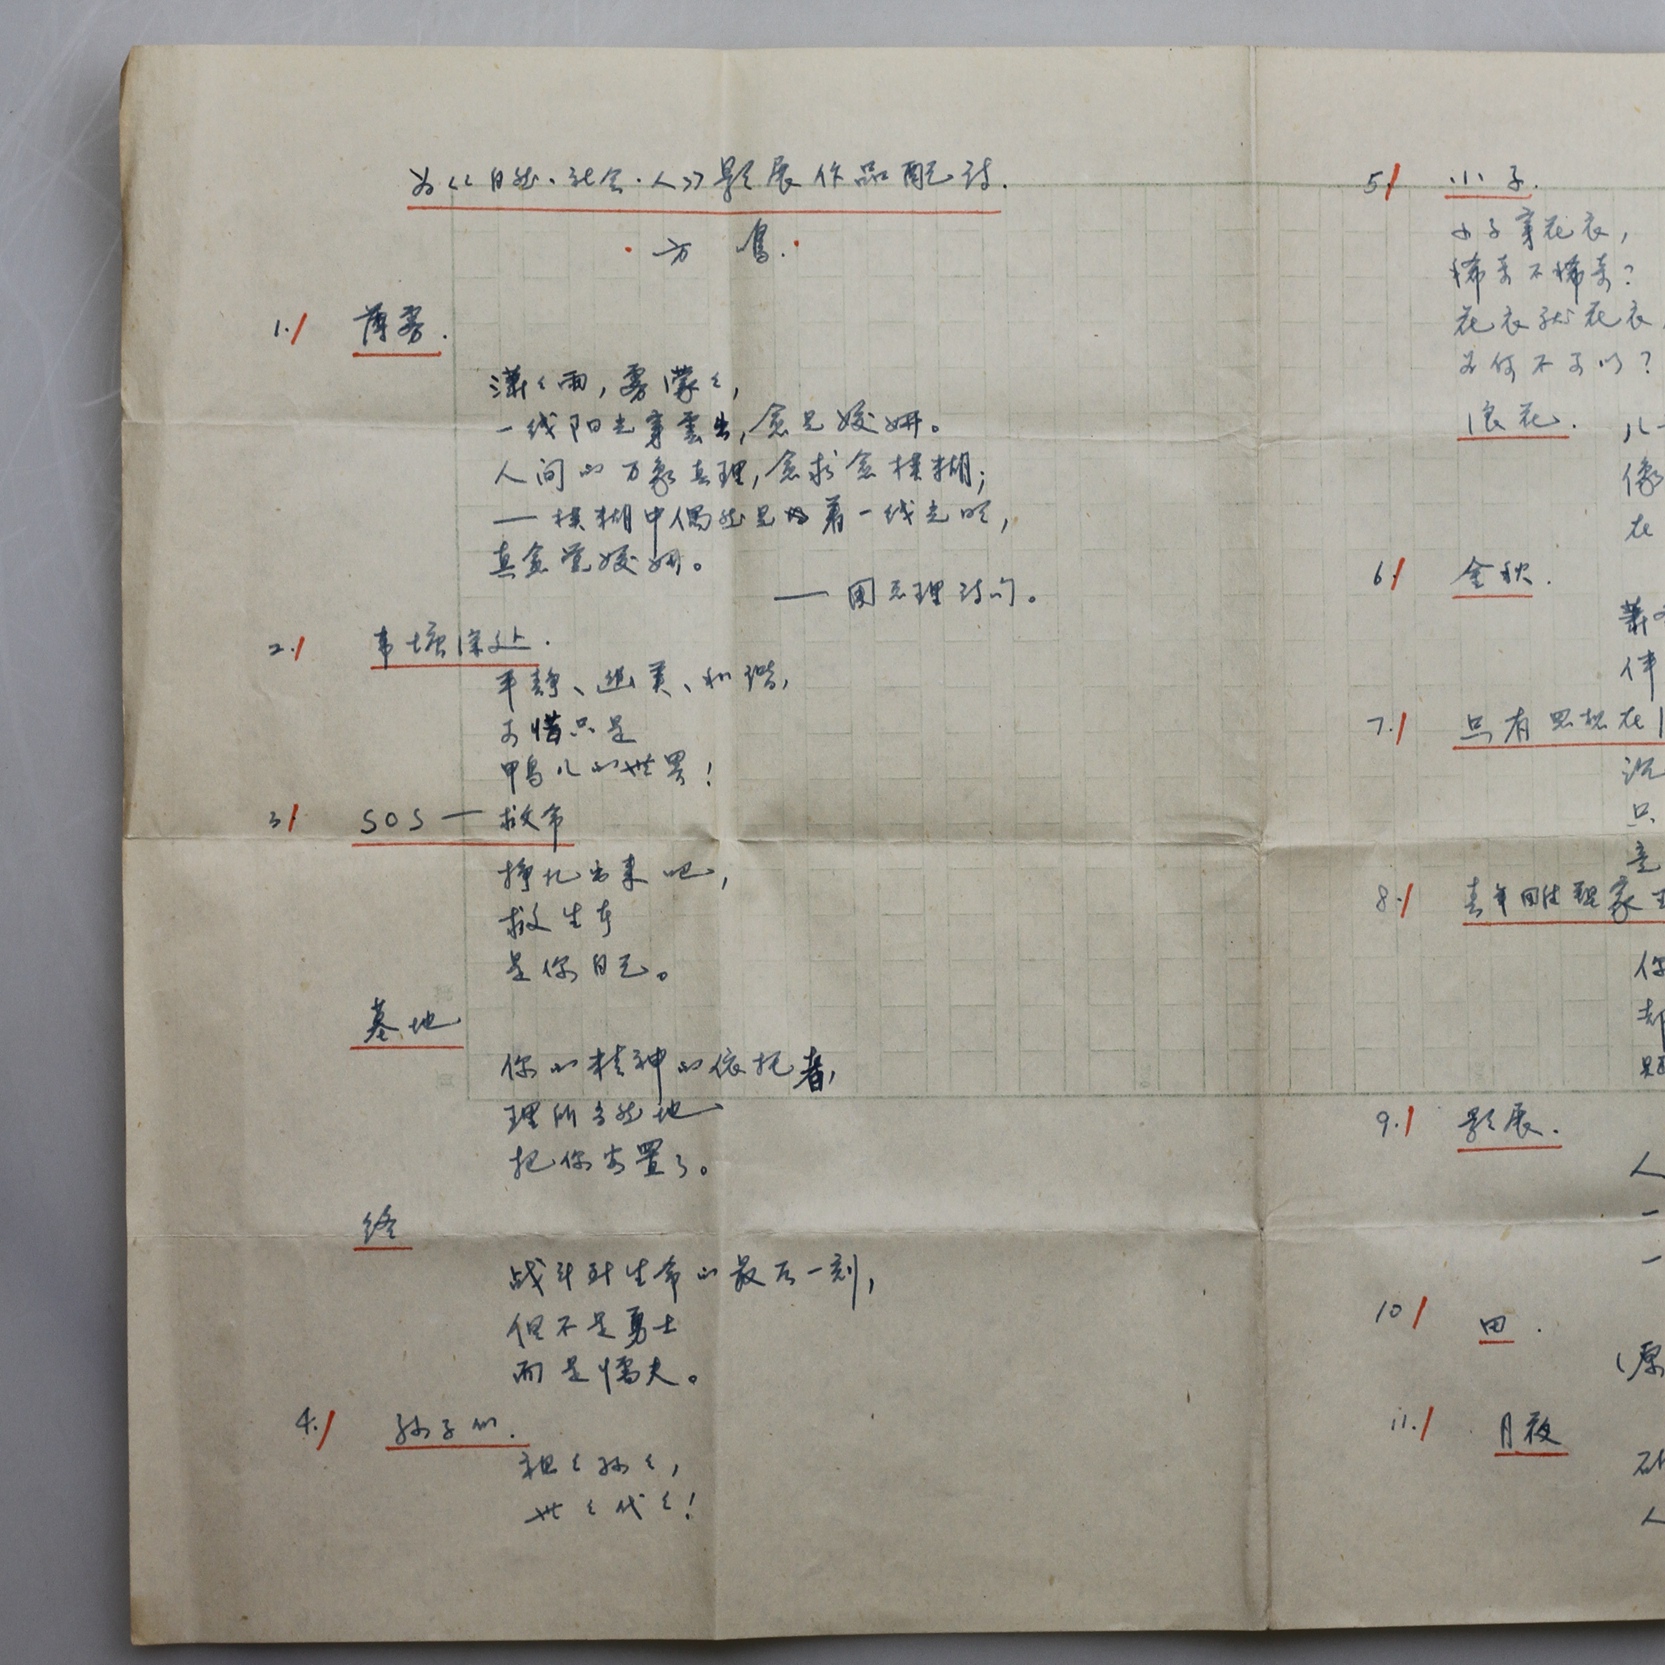 为《自然·社会·人》影展作品配诗.
方
1. 薄雾.
潇々雨，雾濛々，
一线阳光穿雲出，愈见姣妍。
人间的万象真理，愈求愈模糊；
——模糊中偶然见着一线光明，
真愈觉姣妍。
——周总理诗句。
2. 苇塘深处.
平静、幽美、和谐，
可惜只是
鸭儿的世界！
3. SOS—救命
挣扎出来吧，
救生者
是你自己。
墓地
你的精神的依托者，
理所当然地
把你安置了。
终
战斗到生命的最后一刻，
但不是勇士
而是懦夫。
4. 孙子们.
祖々孙々，
世々代々！
5. 小子.
小子穿花衣，
稀奇不稀奇？
花衣就花衣，
为何不可以？
浪花.
儿
像
在
6. 金秋.
萧
伴
7. 只有思想在
沉
只
意
8. 青年雕塑家
你
却
9. 影展.
人
一
一
10 田.
（原
11. 月夜
人